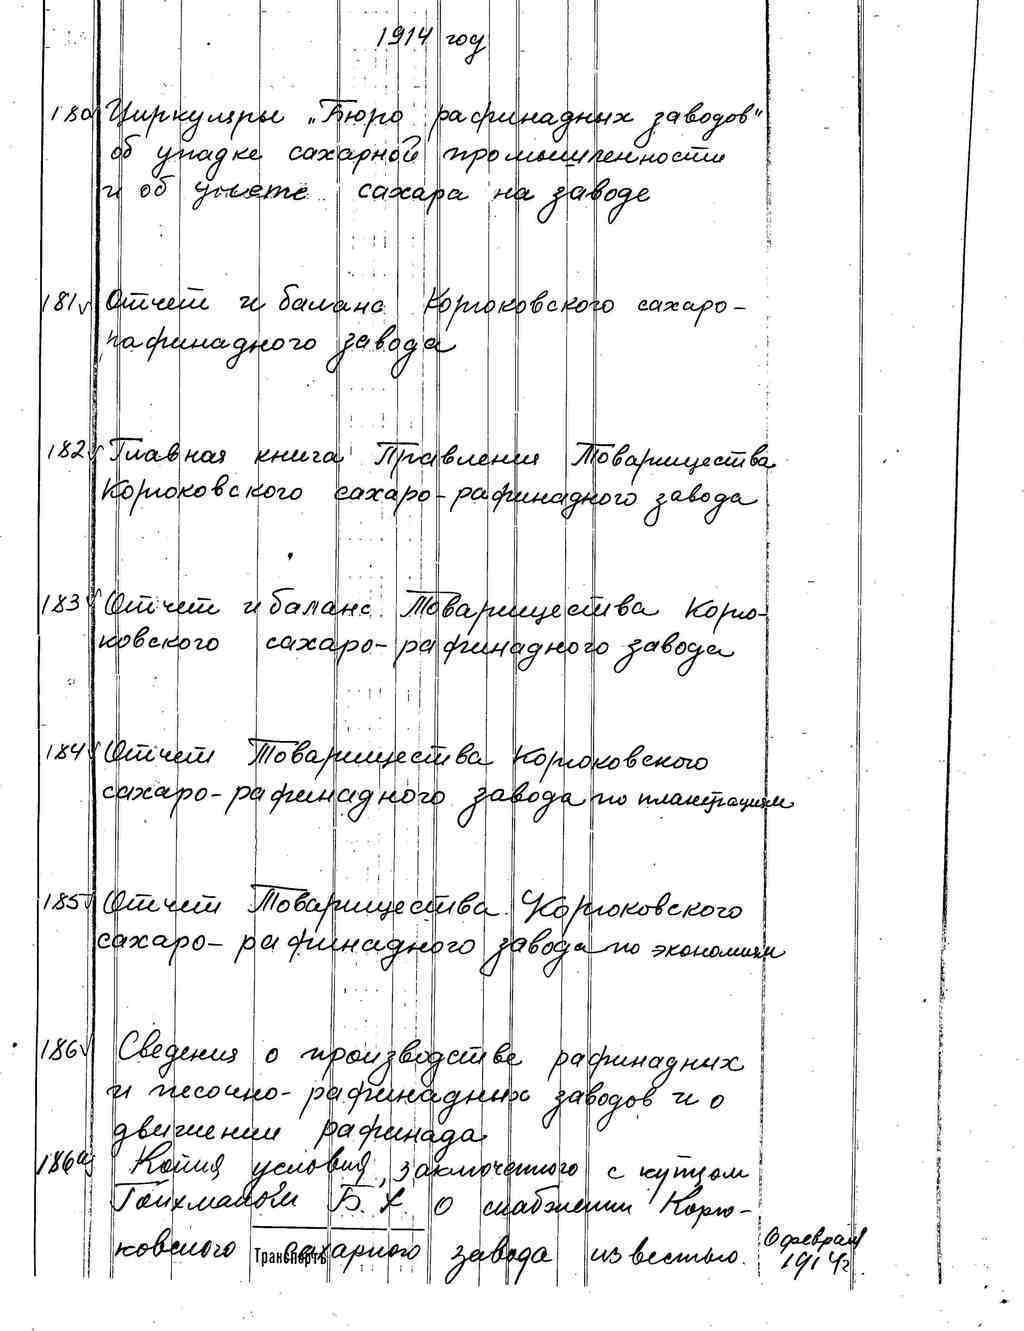 1914 год
180 Циркуляры „Бюро рафинадных заводов"
об упадке сахарной промышленности
и об учете сахара на заводе
181 Отчет и баланс Корюковского сахаро-
рафинадного завода
182 Главная книга Правления Товарищества
Корюковского сахаро-рафинадного завода
183 Отчет и баланс Товарищества Корю-
ковского сахаро-рафинадного завода
184 Отчет Товарищества Корюковского
сахаро-рафинадного завода по плантациям
185 Отчет Товарищества Корюковского
сахаро-рафинадного завода по экономиям
186 Сведения о производстве рафинадных
и песочно-рафинадных заводов и о
движении рафинада
186а Копия условия, заключенного с купцом
Б. Х. о снабжении Корю-
ковского сахарного завода известью. 6 февраля
1914 г.
Транспортъ